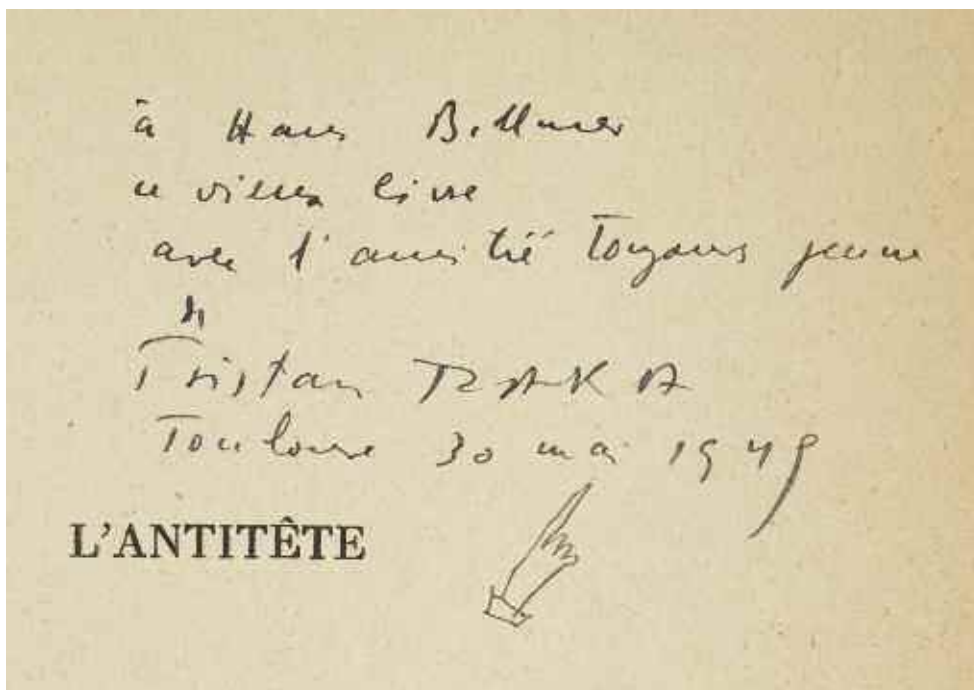 à Hans Bellmer
ce vieux livre
avec l'amitié toujours jeune
de
Tristan TZARA
Toulouse 30 mai
L'ANTITÊTE